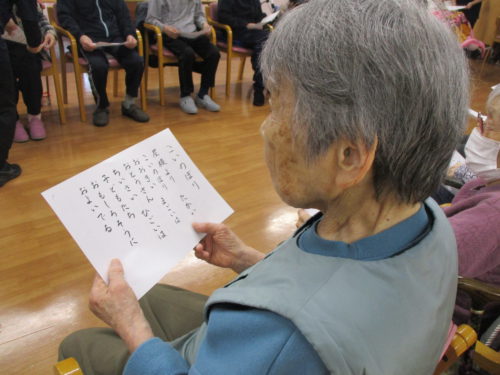 こいのぼり
屋根より たかい
こいのぼり
おおきい まごいは
おとうさん
ちいさい ひごいは
子どもたち
おもしろそうに
およいでる